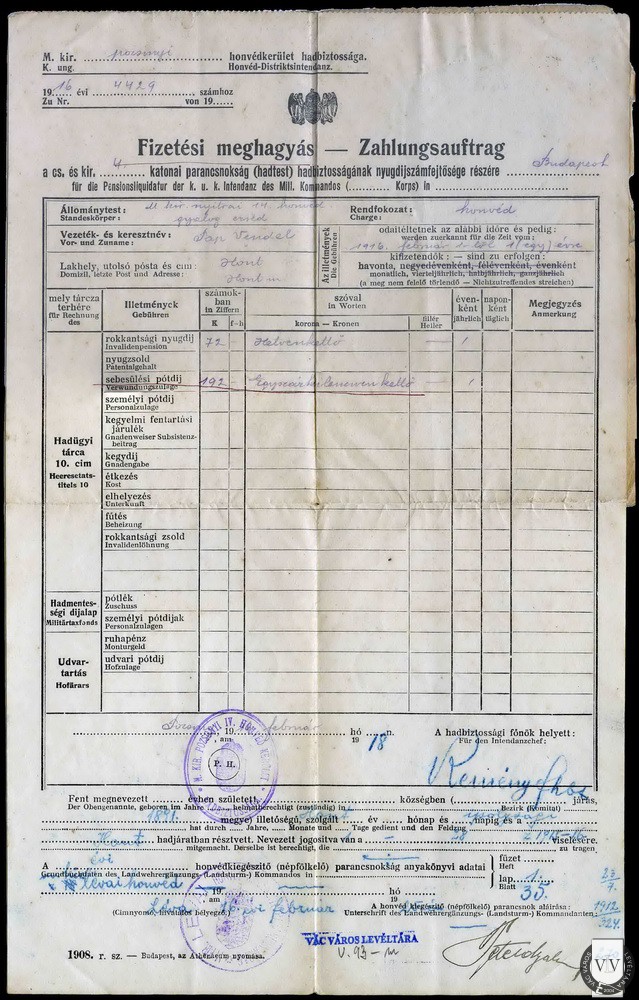 M. kir. pozsonyi honvédkerület hadbiztossága.
K. ung. Honvéd-Distriktsintendanz.
1916 évi 4429 számhoz
Zu Nr. von 19
Fizetési meghagyás — Zahlungsauftrag
a cs. és kir. 4. katonai parancsnokság (hadtest) hadbiztosságának nyugdíjszámfejtősége részére Budapest
für die Pensionsliquidatur der k. u. k. Intendanz des Mil. Kommandos ( Korps) in
Állománytest: M. kir. nyitrai 14. honvéd
Standeskörper: gyalog ezred
Rendfokozat: honvéd
Charge:
Vezeték- és keresztnév: Pap Vendel
Vor- und Zuname:
Lakhely, utolsó pósta és cim: Hont
Domizil, letzte Post und Adresse: Hont m
Az illetmények
Die Gebühren
odaitéltetnek az alábbi időre és pedig:
werden zuerkannt für die Zeit vom:
1916. február 1-től 1 (egy) évre
kifizetendők: — sind zu erfolgen:
havonta, negyedévenként, félévenként, évenként
monatlich, vierteljährlich, halbjährlich, ganzjährlich
(a meg nem felelő törlendő — Nichtzutreffendes streichen)
mely tárcza terhére
für Rechnung des
Illetmények
Gebühren
számokban
in Ziffern
K f-h
szóval
in Worten
korona — Kronen
fillér
Heller
évenként
jährlich
naponként
täglich
Megjegyzés
Anmerkung
rokkantsági nyugdíj 72 - Hetvenkettő — 1
Invalidenpension
nyugzsold
Patentalgehalt
sebesülési pótdíj 192 - Egyszázkilencvenkettő — 1
Verwundungszulage
személyi pótdíj
Personalzulage
kegyelmi fentartási járulék
Gnadenweiser Subsistenzbeitrag
kegydíj
Gnadengabe
étkezés
Kost
elhelyezés
Unterkunft
fűtés
Beheizung
rokkantsági zsold
Invalidenlöhnung
Hadügyi tárca 10. cim
Heeresetatstitels 10
Hadmentességi díjalap
Militärtaxfonds
pótlék
Zuschuss
személyi pótdíjak
Personalzulagen
Udvartartás
Hofärars
ruhapénz
Monturgeld
udvari pótdíj
Hofzulage
19 február hó 18
am 19
P. H.
A hadbiztossági főnök helyett:
Für den Intendanzchef:
Fent megnevezett évben született, községben ( járás,
Der Obengenannte, geboren im Jahre heimatberechtigt (zuständig) in Bezirk (Komitat)
1891. megye) illetőségű, szolgált év hónap és napig és a
hat durch Jahre, Monate und Tage gedient und den Feldzug
Hont hadjáratban résztvett. Nevezett jogosítva van a 1915-16 viselésére.
mitgemacht. Derselbe ist berechtigt, die zu tragen
A honvédkiegészítő (népfölkelő) parancsnokság anyakönyvi adatai
Grundbuchdaten des Landwehrergänzungs- (Landsturm-) Kommandos in
füzet
Heft
lap 1.
Blatt 35.
lévai honvéd
19 hó
am 19
Léva február
(Cimnyomó, hivatalos helyező.)
A honvéd kiegészítő (népfölkelő) parancsnok aláírása:
Unterschrift des Landwehrergänzungs- (Landsturm-) Kommandanten:
1912
324.
VÁC VÁROS LEVÉLTÁRA
V. 93-
1908. r. sz. — Budapest, az Athenaeum nyomása.
VV